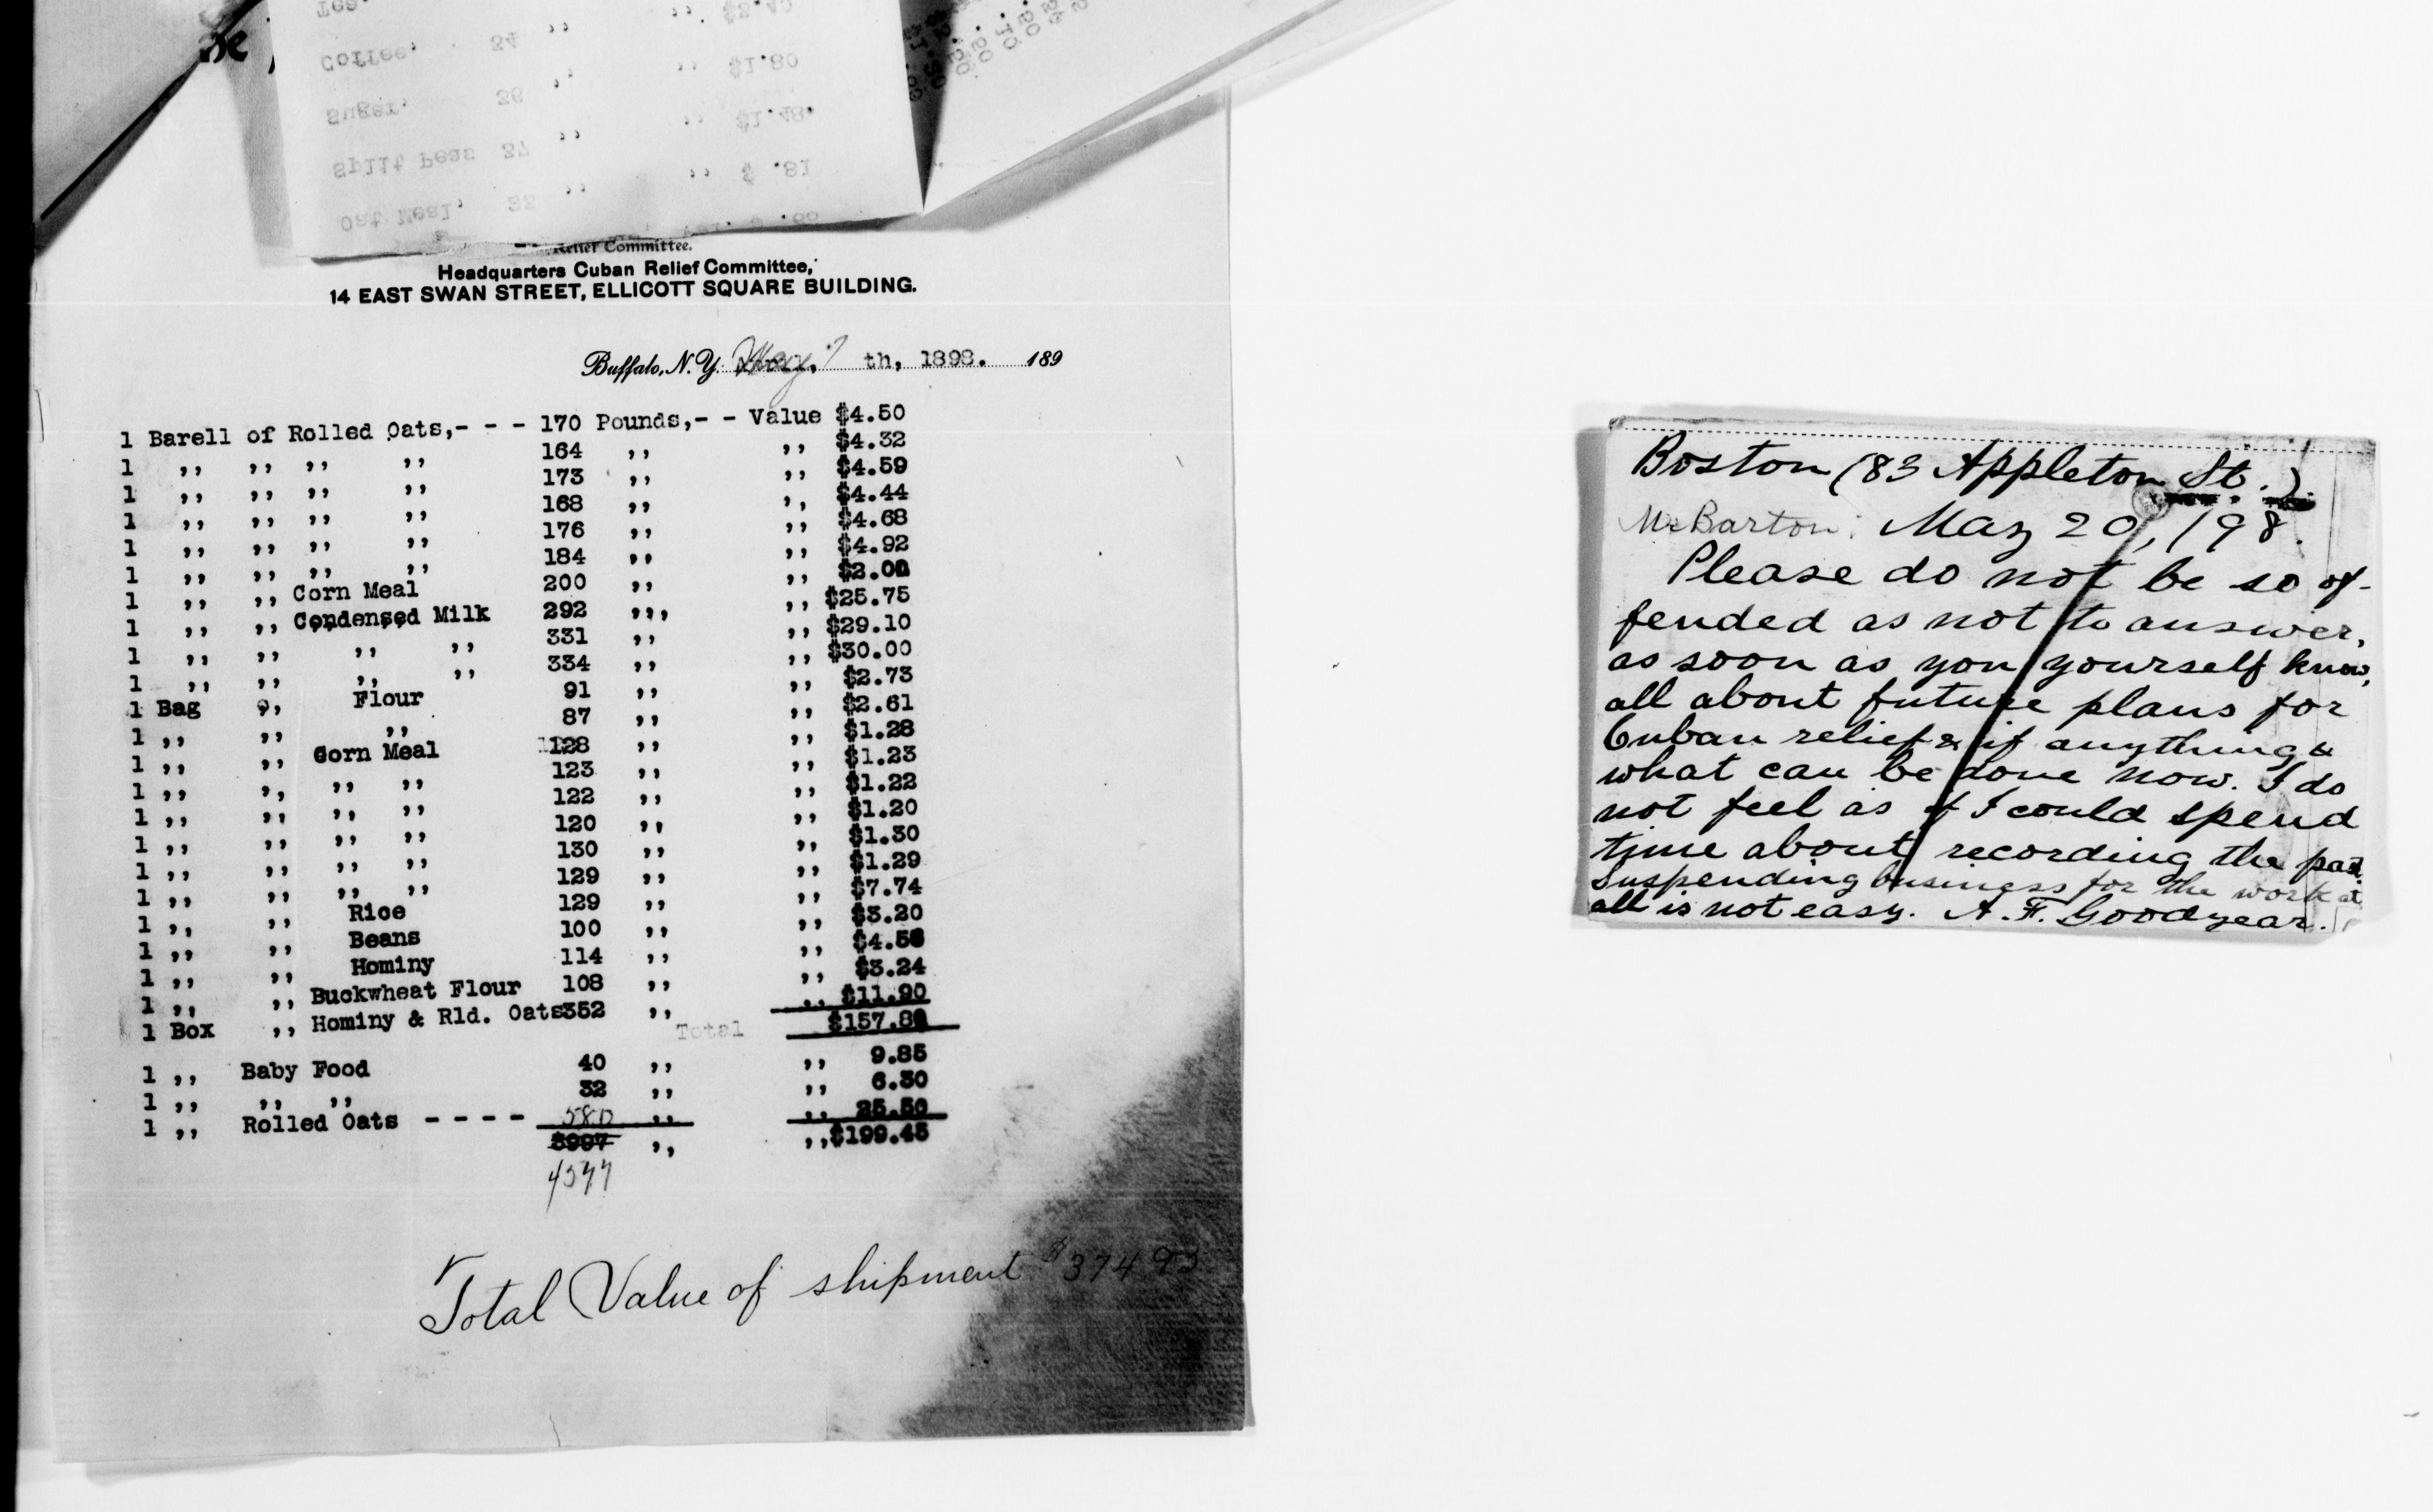 Coffee, 34 ,, ,, $1.80
Suger, 36 ,, ,, $1.48
Split Peas 37 ,, ,, $ .81
Oat Meal,
Relief Committee.
Headquarters Cuban Relief Committee,
14 EAST SWAN STREET, ELLICOTT SQUARE BUILDING.
Buffalo, N. Y. May 7 th, 1898. 189
1 Barell of Rolled Oats,- - - 170 Pounds,- - Value $4.50
1 ,, ,, ,, ,, 164 ,, ,, $4.32
1 ,, ,, ,, ,, 173 ,, ,, $4.59
1 ,, ,, ,, ,, 168 ,, ,, $4.44
1 ,, ,, ,, ,, 176 ,, ,, $4.68
1 ,, ,, ,, ,, 184 ,, ,, $4.92
1 ,, ,, Corn Meal 200 ,, ,, $2.00
1 ,, ,, Condensed Milk 292 ,,, ,, $25.75
1 ,, ,, ,, ,, 331 ,, ,, $29.10
1 ,, ,, ,, ,, 334 ,, ,, $30.00
1 Bag ,, Flour 91 ,, ,, $2.73
1 ,, ,, ,, 87 ,, ,, $2.61
1 ,, ,, Corn Meal 128 ,, ,, $1.28
1 ,, ,, ,, ,, 123 ,, ,, $1.23
1 ,, ,, ,, ,, 122 ,, ,, $1.22
1 ,, ,, ,, ,, 120 ,, ,, $1.20
1 ,, ,, ,, ,, 130 ,, ,, $1.30
1 ,, ,, ,, ,, 129 ,, ,, $1.29
1 ,, ,, Rice 129 ,, ,, $7.74
1 ,, ,, Beans 100 ,, ,, $3.20
1 ,, ,, Hominy 114 ,, ,, $4.56
1 ,, ,, Buckwheat Flour 108 ,, ,, $3.24
1 Box ,, Hominy & Rld. Oats 352 ,, ,, $11.90
Total $157.80
1 ,, Baby Food 40 ,, ,, 9.85
1 ,, ,, ,, 32 ,, ,, 6.30
1 ,, Rolled Oats - - - - 580 ,, ,, 25.50
3997 ,, ,, $199.45
4577
Total Value of shipment $374 95
Boston (83 Appleton St.)
Mr Barton: May 20, /98.
Please do not be so of-
fended as not to answer,
as soon as you yourself know,
all about future plans for
Cuban relief & if anything &
what can be done now. I do
not feel as if I could spend
time about recording the past.
Suspending business for the work at
all is not easy. A. F. Goodyear.